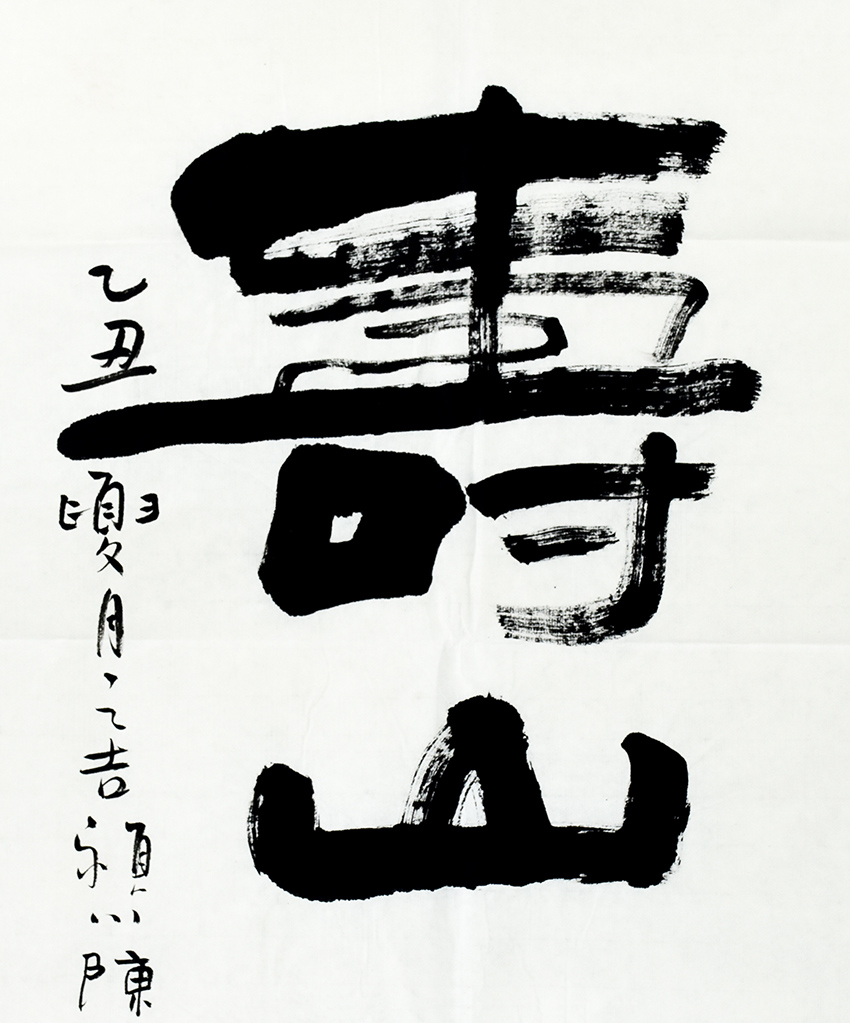 壽山
乙丑夓月之吉潁川陳